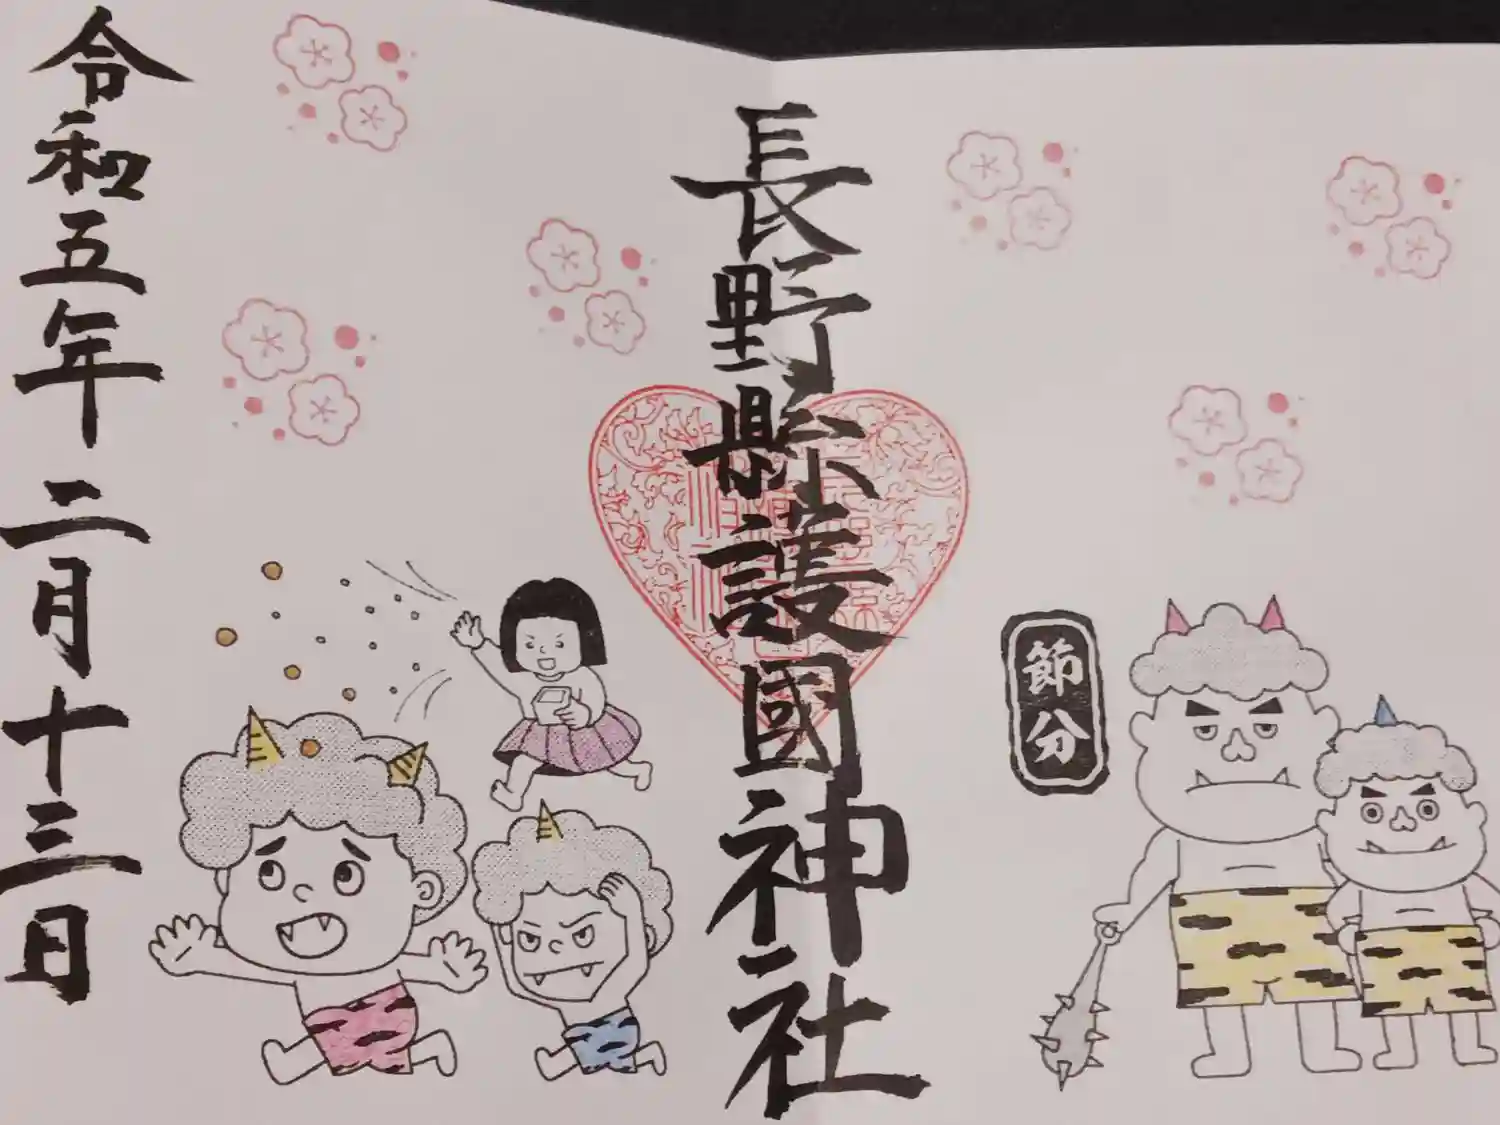 節分
長野縣護國神社
令和五年二月十三日